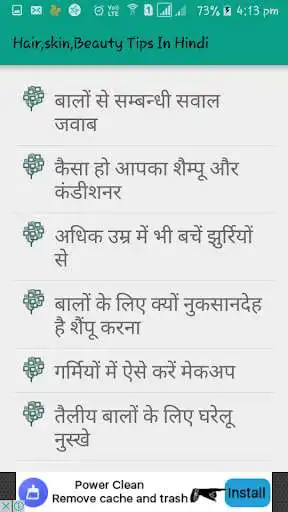 VoD LTE 1 73% 4:13 pm
Hair,skin,Beauty Tips In Hindi
बालों से सम्बन्धी सवाल
जवाब
कैसा हो आपका शैम्पू और
कंडीशनर
अधिक उम्र में भी बचें झुर्रियों
से
बालों के लिए क्यों नुकसानदेह
है शैंपू करना
गर्मियों में ऐसे करें मेकअप
तैलीय बालों के लिए घरेलू
नुस्खे
Power Clean
Remove cache and trash
Install